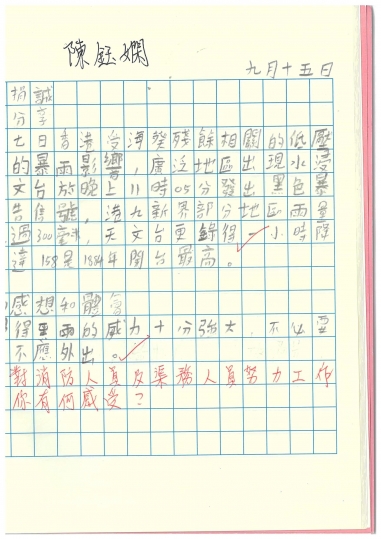 陳鈺嫻
九月十五日
捐誠
分享
七日香港受海葵殘餘相關的低壓
的暴雨影響，廣泛地區出現水浸
文台於晚上11時05分發出黑色暴
告信號，港九新界部分地區雨量
過300毫米，天文台更錄得一小時降
達158是1884年開台最高。
感想和體會
得黑雨的威力十分強大，不必要
不應外出。
對消防人員及渠務人員努力工作
你有何感受？